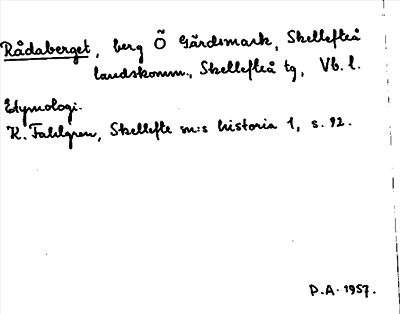 Rådaberget, berg Ö Gärdsmark, Skellefteå
landskomm., Skellefteå tg, Vb. l.
Etymologi.
K. Fahlgren, Skellefte sn:s historia 1, s. 92.
P.A. 1957.